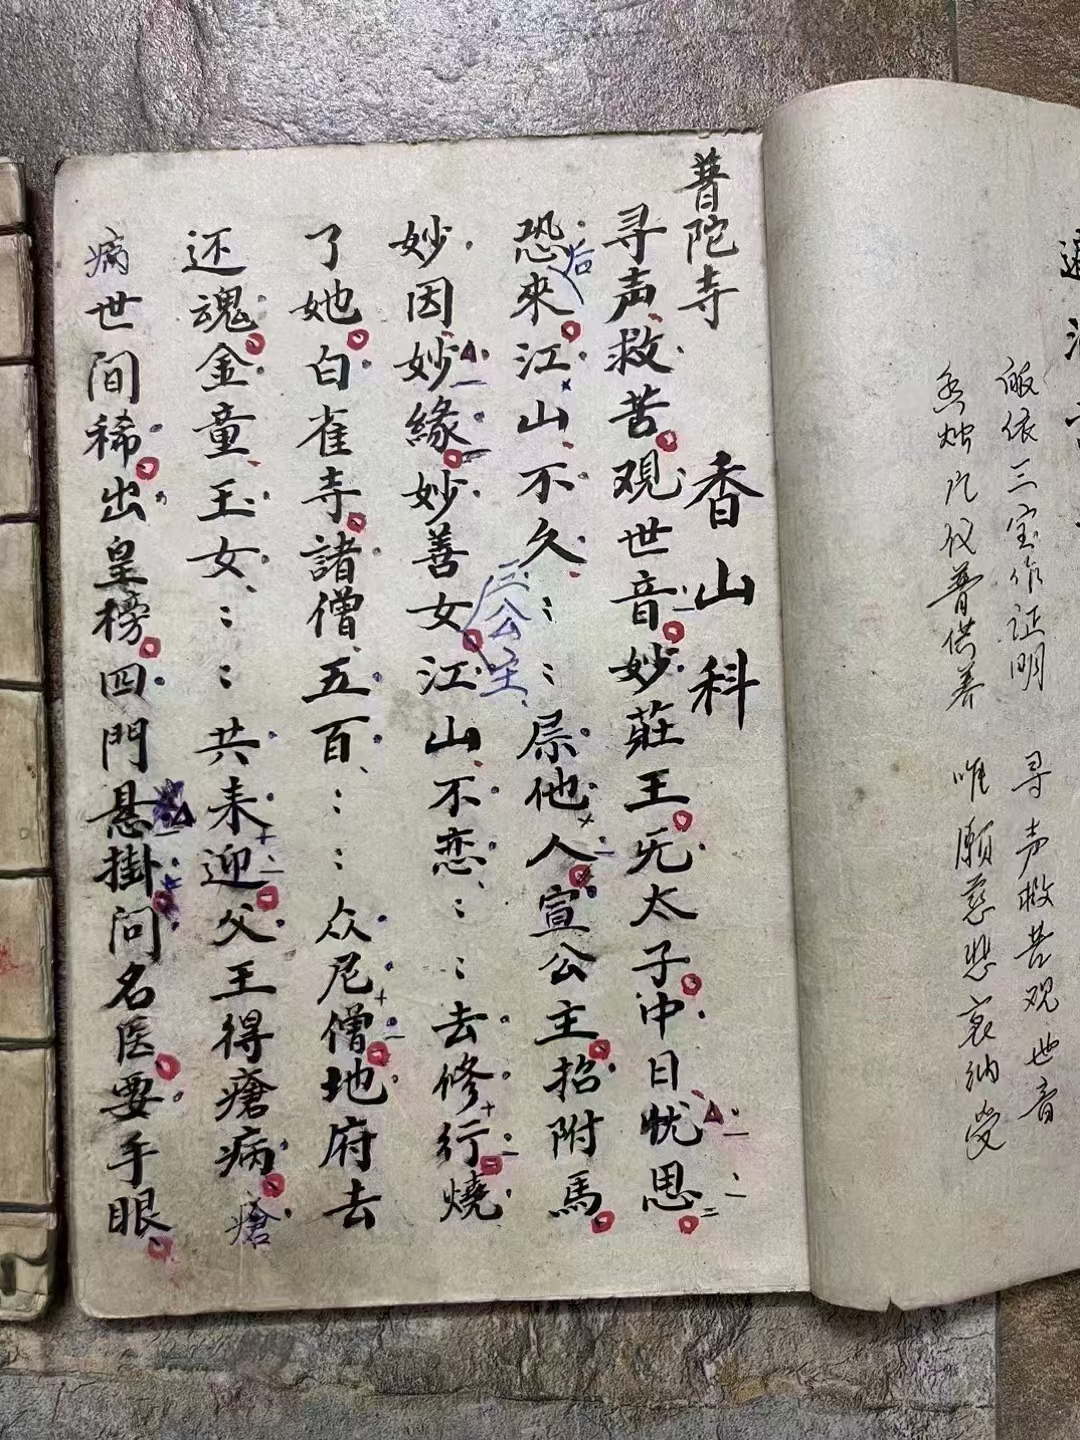 皈依三宝作证明 寻声救苦观世音
香烛凡仪普供养 唯願慈悲哀纳受
普陀寺 香山科
寻声救苦观世音妙莊王旡太子冲日忧思
恐來江山不久⋮⋮屌他人宣公主招附馬
后
妙因妙緣妙善女江山不恋⋮⋮去修行燒
三公主
了她白雀寺諸僧五百⋮⋮众尼僧地府去
还魂金童玉女⋮⋮共耒迎父王得瘡病
瘡
病世间稀出皇榜四門悬掛问名医要手眼